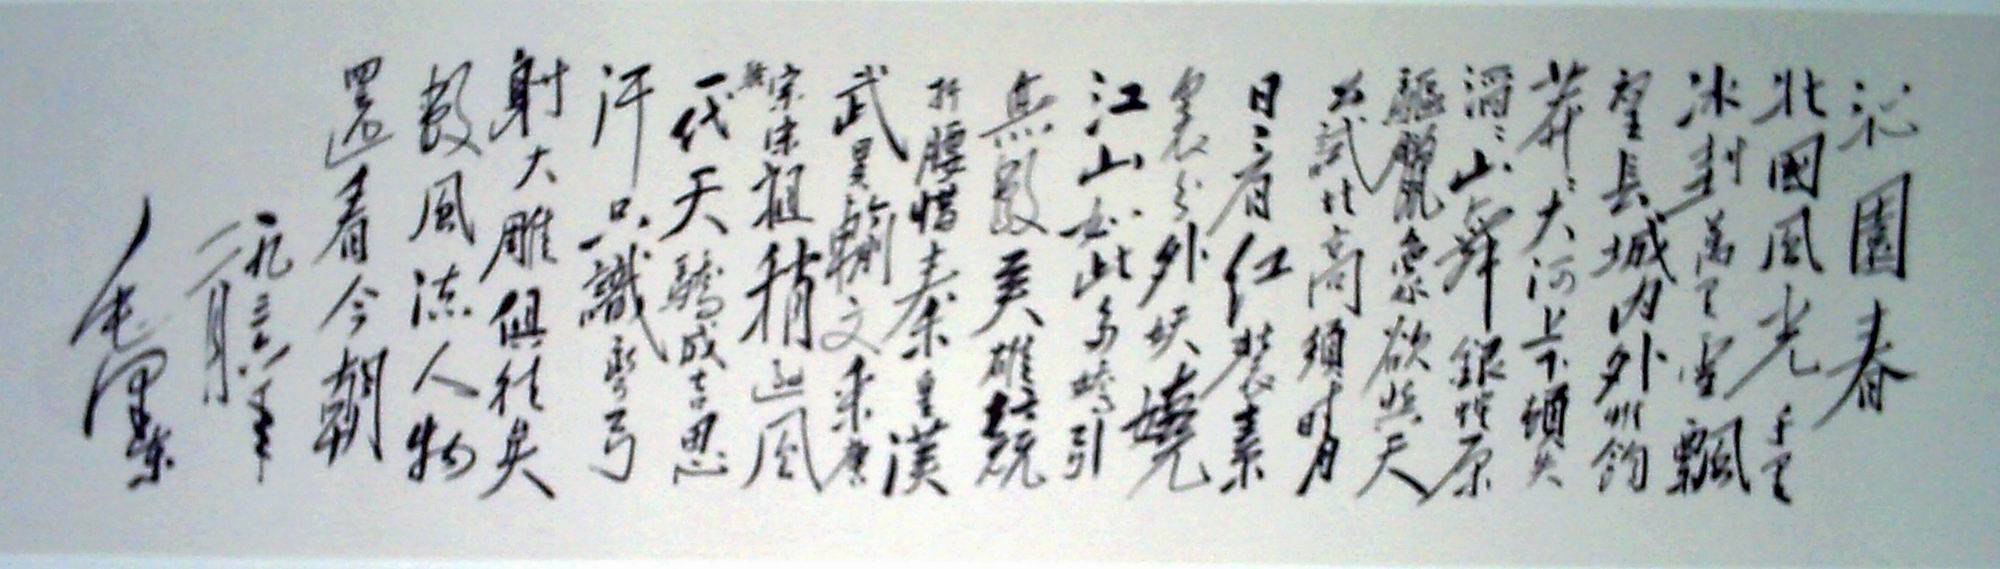 沁園春
北國風光千里
冰封萬里雪飄
望長城内外惟餘
莽〻大河上下頓失
滔〻山舞銀蛇原
驅臘象欲與天
公試比高須晴
日看紅裝素
裹分外妖嬈
江山如此多嬌引
無數英雄競
折腰惜秦皇漢
武畧輸文采唐
宗宋祖稍遜風騷
一代天驕成吉思
汗只識彎弓
射大雕俱往矣
數風流人物
還看今朝
一九三六年
二月
毛澤東